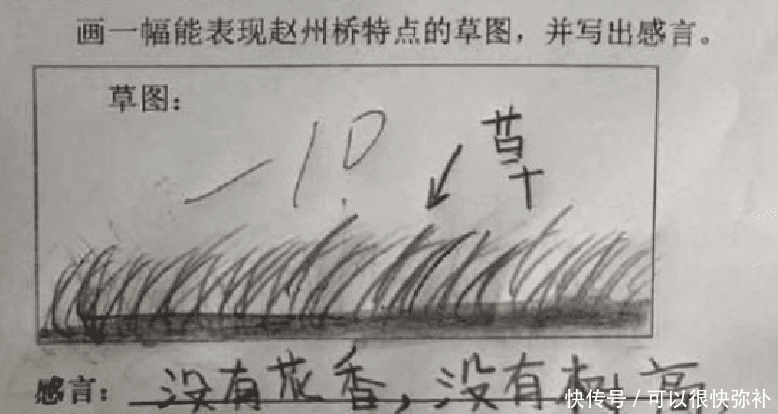 画一幅能表现赵州桥特点的草图，并写出感言。
草图：
-10
草
感言：没有花香，没有树高，
快传号 / 可以很快弥补